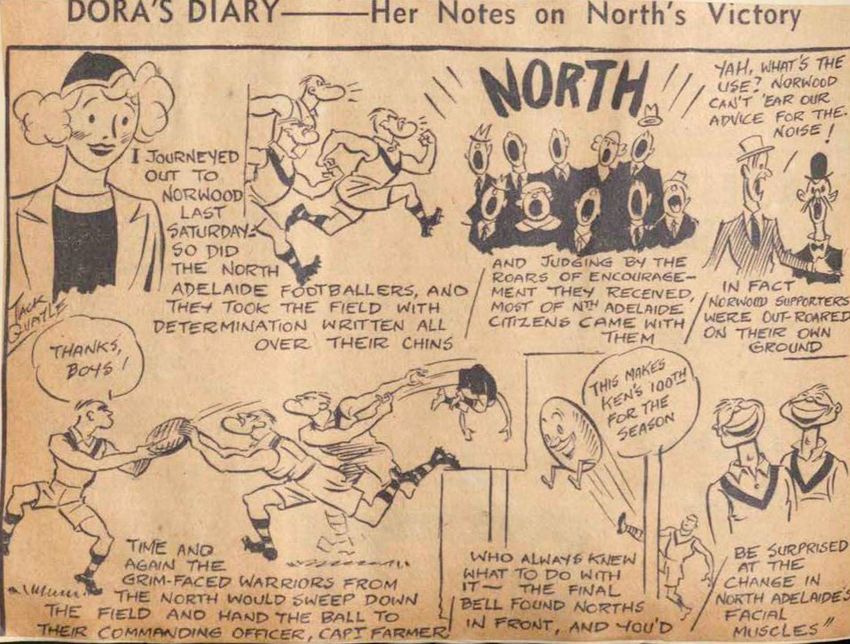 DORA'S DIARY——Her Notes on North's Victory
I JOURNEYED
OUT TO
NORWOOD
LAST
SATURDAY.
SO DID
THE NORTH
ADELAIDE FOOTBALLERS, AND
THEY TOOK THE FIELD WITH
DETERMINATION WRITTEN ALL
OVER THEIR CHINS
JACK
QUAYLE
NORTH
AND JUDGING BY THE
ROARS OF ENCOURAGE-
MENT THEY RECEIVED,
MOST OF NTH ADELAIDE
CITIZENS CAME WITH
THEM
YAH, WHAT'S THE
USE? NORWOOD
CAN'T 'EAR OUR
ADVICE FOR THE.
NOISE!
IN FACT
NORWOOD SUPPORTERS
WERE OUT-ROARED
ON THEIR OWN
GROUND
THANKS,
BOYS!
TIME AND
AGAIN THE
GRIM-FACED WARRIORS FROM
THE NORTH WOULD SWEEP DOWN
THE FIELD AND HAND THE BALL TO
THEIR COMMANDING OFFICER, CAPT FARMER,
THIS MAKES
KEN'S 100TH
FOR THE
SEASON
WHO ALWAYS KNEW
WHAT TO DO WITH
IT — THE FINAL
BELL FOUND NORTHS
IN FRONT, AND YOU'D
BE SURPRISED
AT THE
CHANGE IN
NORTH ADELAIDE'S
FACIAL
MUSCLES"